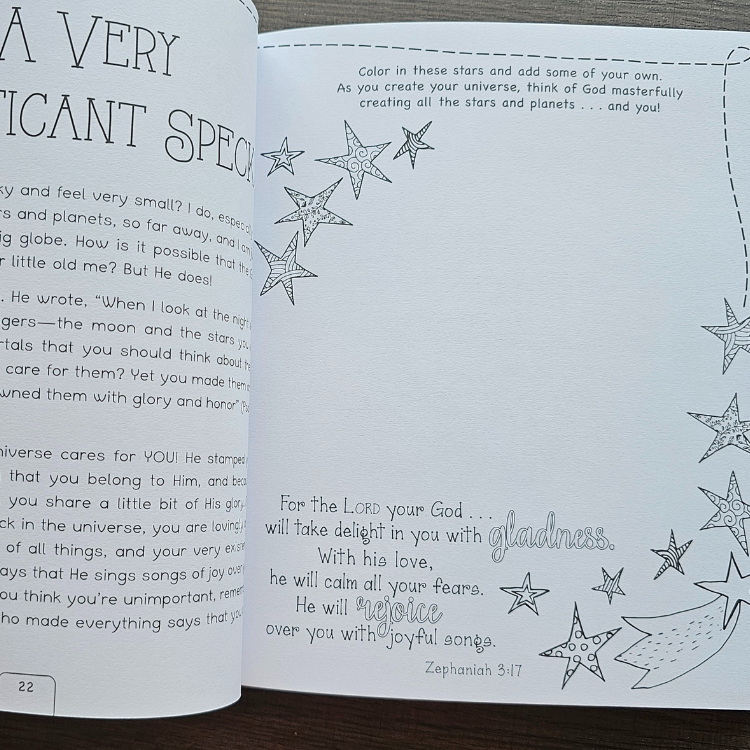 A VERY
FICANT SPECK
ky and feel very small? I do, especially
rs and planets, so far away, and I am
ig globe. How is it possible that the
r little old me? But He does!
. He wrote, “When I look at the night
gers—the moon and the stars you
rtals that you should think about
care for them? Yet you made them
wned them with glory and honor”
niverse cares for YOU! He stamped
that you belong to Him, and
you share a little bit of His glory.
ck in the universe, you are lovingly
of all things, and your very
ays that He sings songs of joy over
ou think you’re unimportant,
ho made everything says that
22
Color in these stars and add some of your own.
As you create your universe, think of God masterfully
creating all the stars and planets . . . and you!
For the LORD your God . . .
will take delight in you with gladness.
With his love,
he will calm all your fears.
He will rejoice
over you with joyful songs.
Zephaniah 3:17